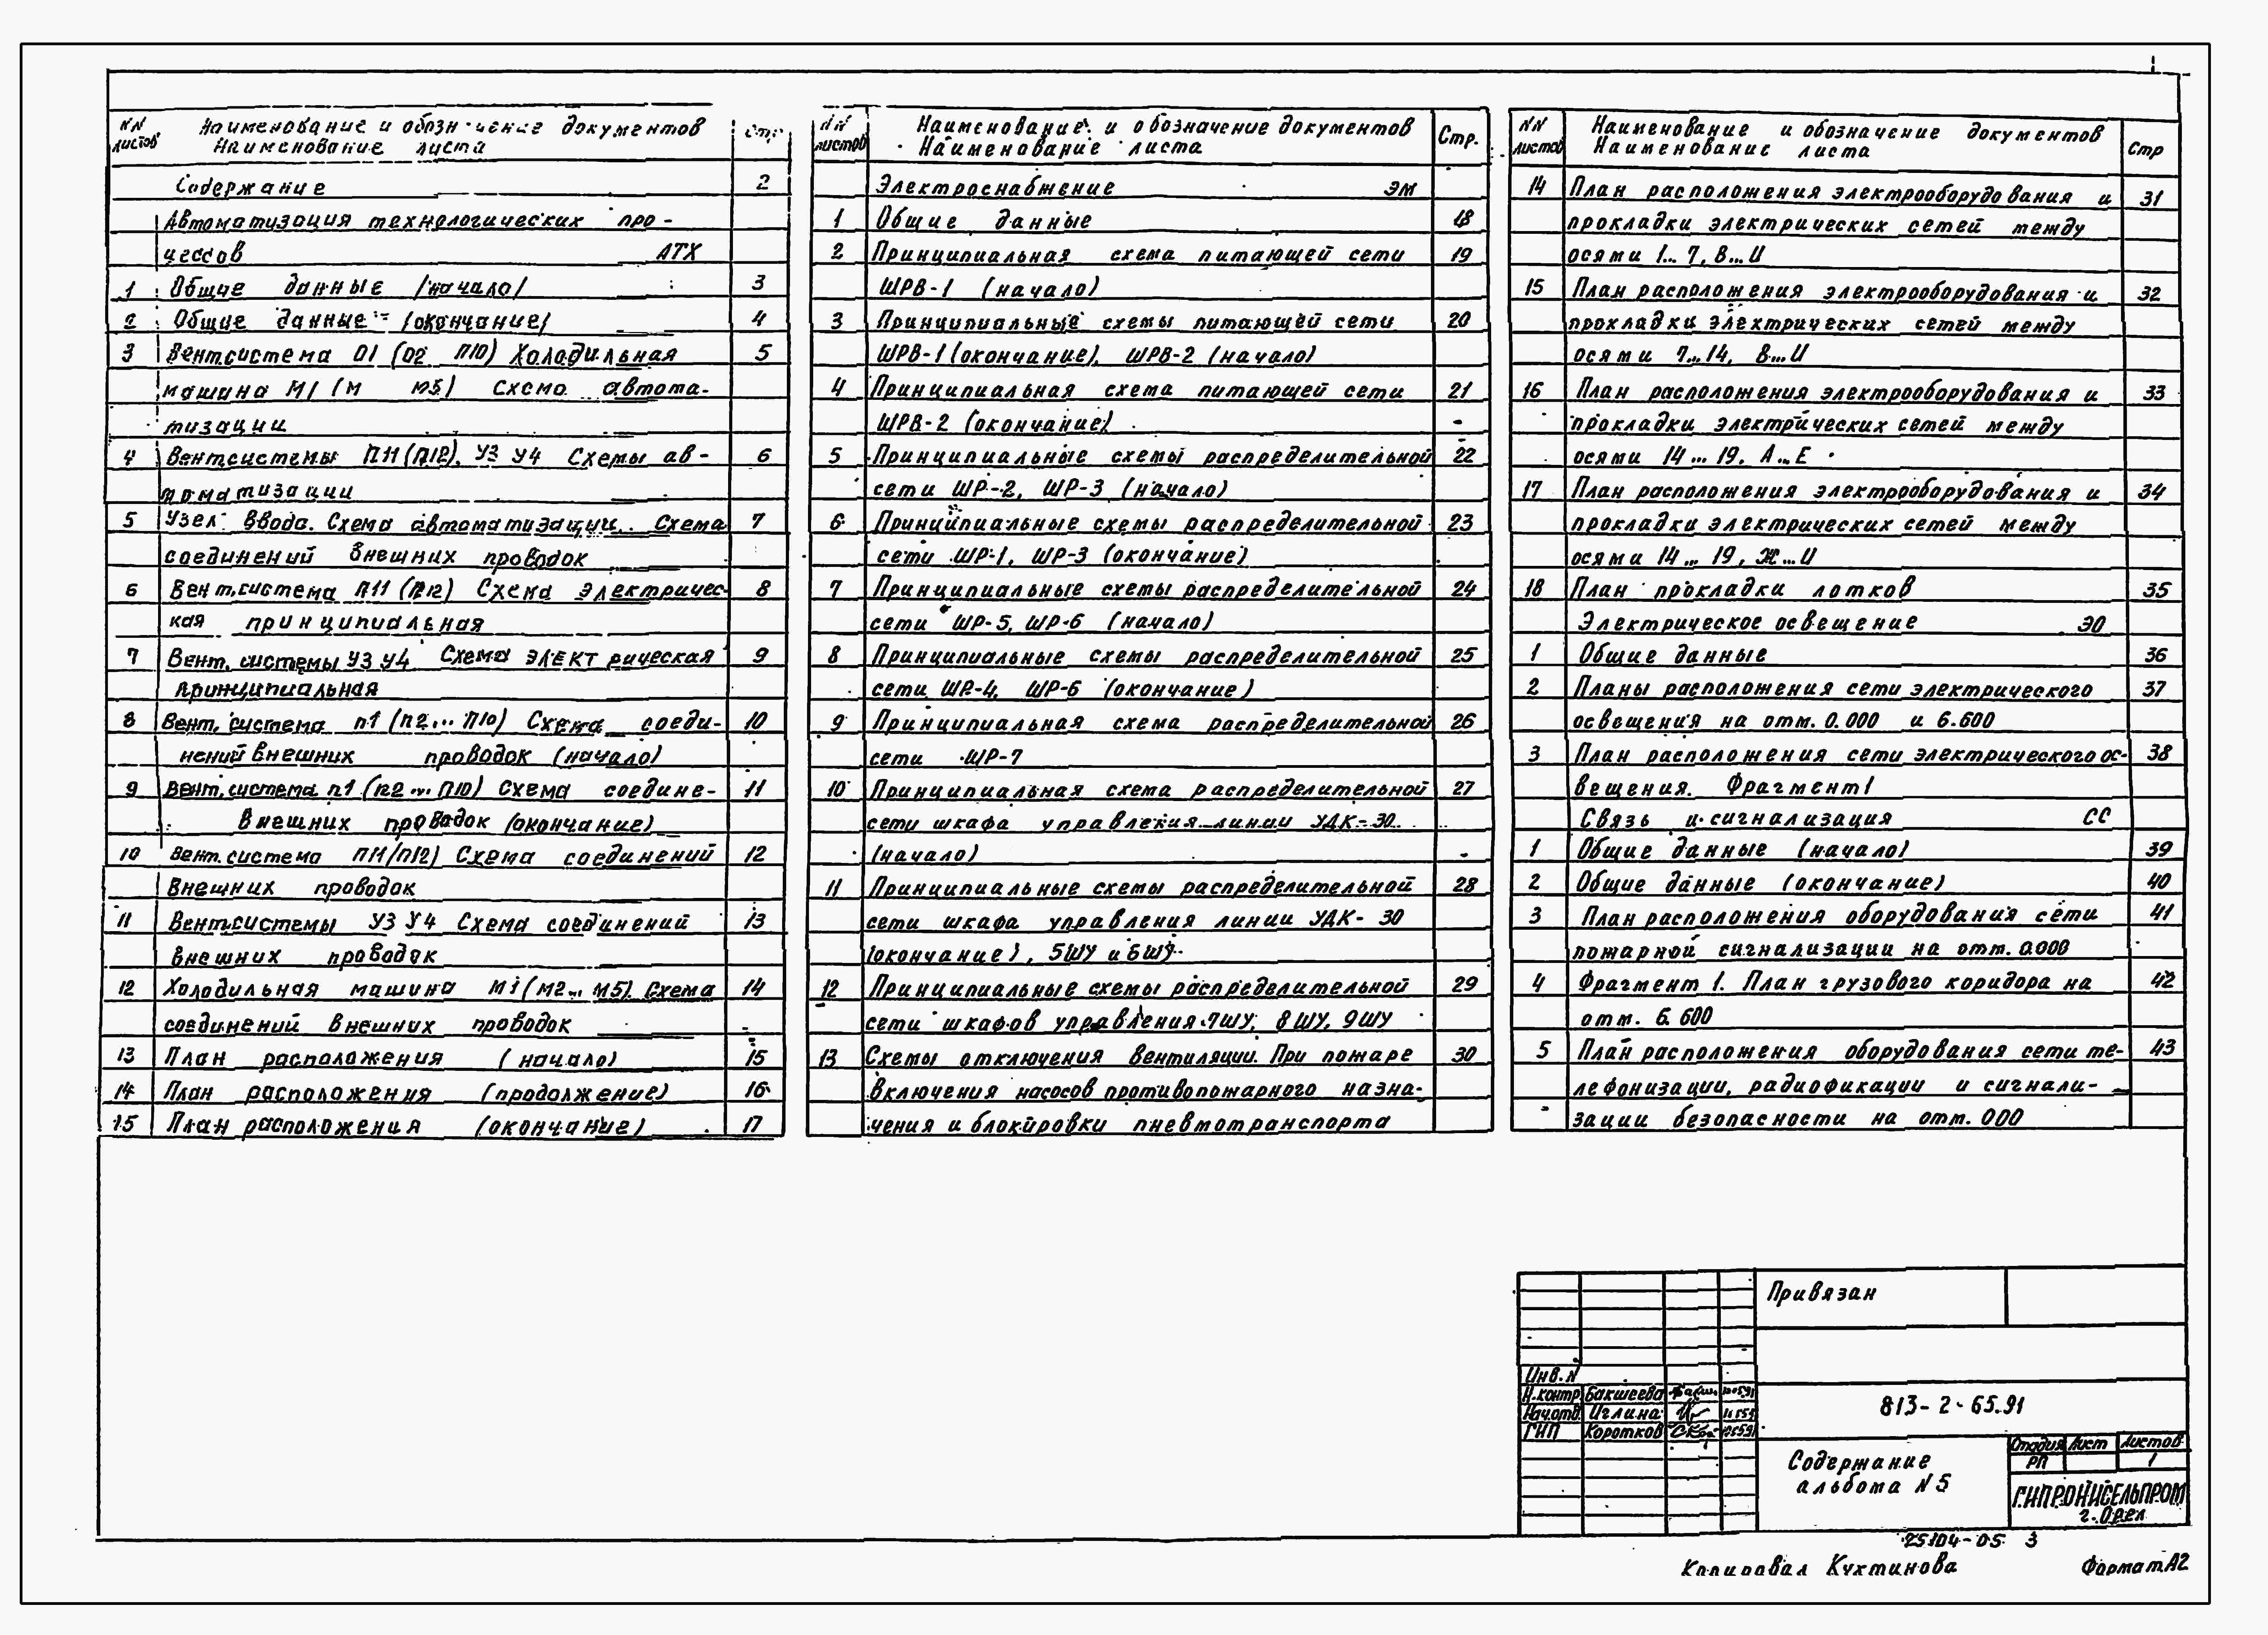 NN листов
Наименование и обозначение документов
Наименование листа
Стр
Содержание 2
Автоматизация технологических про-
цессов АТХ
1 Общие данные /начало/ 3
2 Общие данные /окончание/ 4
3 Вент.система О1 (О2 П10) Холодильная 5
машина М1 (М М5) Схема автома-
тизации
4 Вентсистемы П11 (П12), У3 У4 Схемы ав- 6
томатизации
5 Узел ввода. Схема автоматизации. Схема 7
соединений внешних проводок
6 Вент.система П11 (П12) Схема электричес- 8
кая принципиальная
7 Вент. системы У3 У4 Схема электрическая 9
принципиальная
8 Вент. система п1 (П2... П10) Схема соеди- 10
нений внешних проводок (начало)
9 Вент. система п1 (п2... П10) Схема соедине- 11
внешних проводок (окончание)
10 Вент. система П11/П12) Схема соединений 12
внешних проводок
11 Вентсистемы У3 У4 Схема соединений 13
внешних проводок
12 Холодильная машина М1 (М2... М5). Схема 14
соединений внешних проводок
13 План расположения (начало) 15
14 План расположения (продолжение) 16
15 План расположения (окончание) 17
NN листов
Наименование и обозначение документов
Наименование листа
Стр.
Электроснабжение ЭМ
1 Общие данные 18
2 Принципиальная схема питающей сети 19
ШРВ-1 (начало)
3 Принципиальные схемы питающей сети 20
ШРВ-1 (окончание), ШРВ-2 (начало)
4 Принципиальная схема питающей сети 21
ШРВ-2 (окончание)
5 Принципиальные схемы распределительной 22
сети ШР-2, ШР-3 (начало)
6 Принципиальные схемы распределительной 23
сети ШР-1, ШР-3 (окончание)
7 Принципиальные схемы распределительной 24
сети ШР-5, ШР-6 (начало)
8 Принципиальные схемы распределительной 25
сети ШР-4, ШР-6 (окончание)
9 Принципиальная схема распределительной 26
сети ШР-7
10 Принципиальная схема распределительной 27
сети шкафа управления линии УДК-30
(начало)
11 Принципиальные схемы распределительной 28
сети шкафа управления линии УДК-30
(окончание), 5ШУ и 6ШУ
12 Принципиальные схемы распределительной 29
сети шкафов управления 7ШУ, 8ШУ, 9ШУ
13 Схемы отключения вентиляции. При пожаре 30
включения насосов противопожарного назна-
чения и блокировки пневмотранспорта
NN листов
Наименование и обозначение документов
Наименование листа
Стр
14 План расположения электрооборудования и 31
прокладки электрических сетей между
осями 1... 7, В...И
15 План расположения электрооборудования и 32
прокладки электрических сетей между
осями 7... 14, В...И
16 План расположения электрооборудования и 33
прокладки электрических сетей между
осями 14... 19, А...Е
17 План расположения электрооборудования и 34
прокладки электрических сетей между
осями 14... 19, Ж...И
18 План прокладки лотков 35
Электрическое освещение ЭО
1 Общие данные 36
2 Планы расположения сети электрического 37
освещения на отм. 0.000 и 6.600
3 План расположения сети электрического ос- 38
вещения. Фрагмент 1
Связь и сигнализация СС
1 Общие данные (начало) 39
2 Общие данные (окончание) 40
3 План расположения оборудования сети 41
пожарной сигнализации на отм. 0.000
4 Фрагмент 1. План грузового коридора на 42
отм. 6.600
5 План расположения оборудования сети те- 43
лефонизации, радиофикации и сигнали-
зации безопасности на отм. 000
Привязан
Инв. N
Н.контр Бакшеева
Нач.отд. Иглина
ГИП Коротков
813-2-65.91
Содержание
альбома N 5
Стадия Лист Листов
РП 1
ГИПРОНИСЕЛЬПРОМ
г. Орел
25104-05 3
Копировал Кухтинова Формат А2